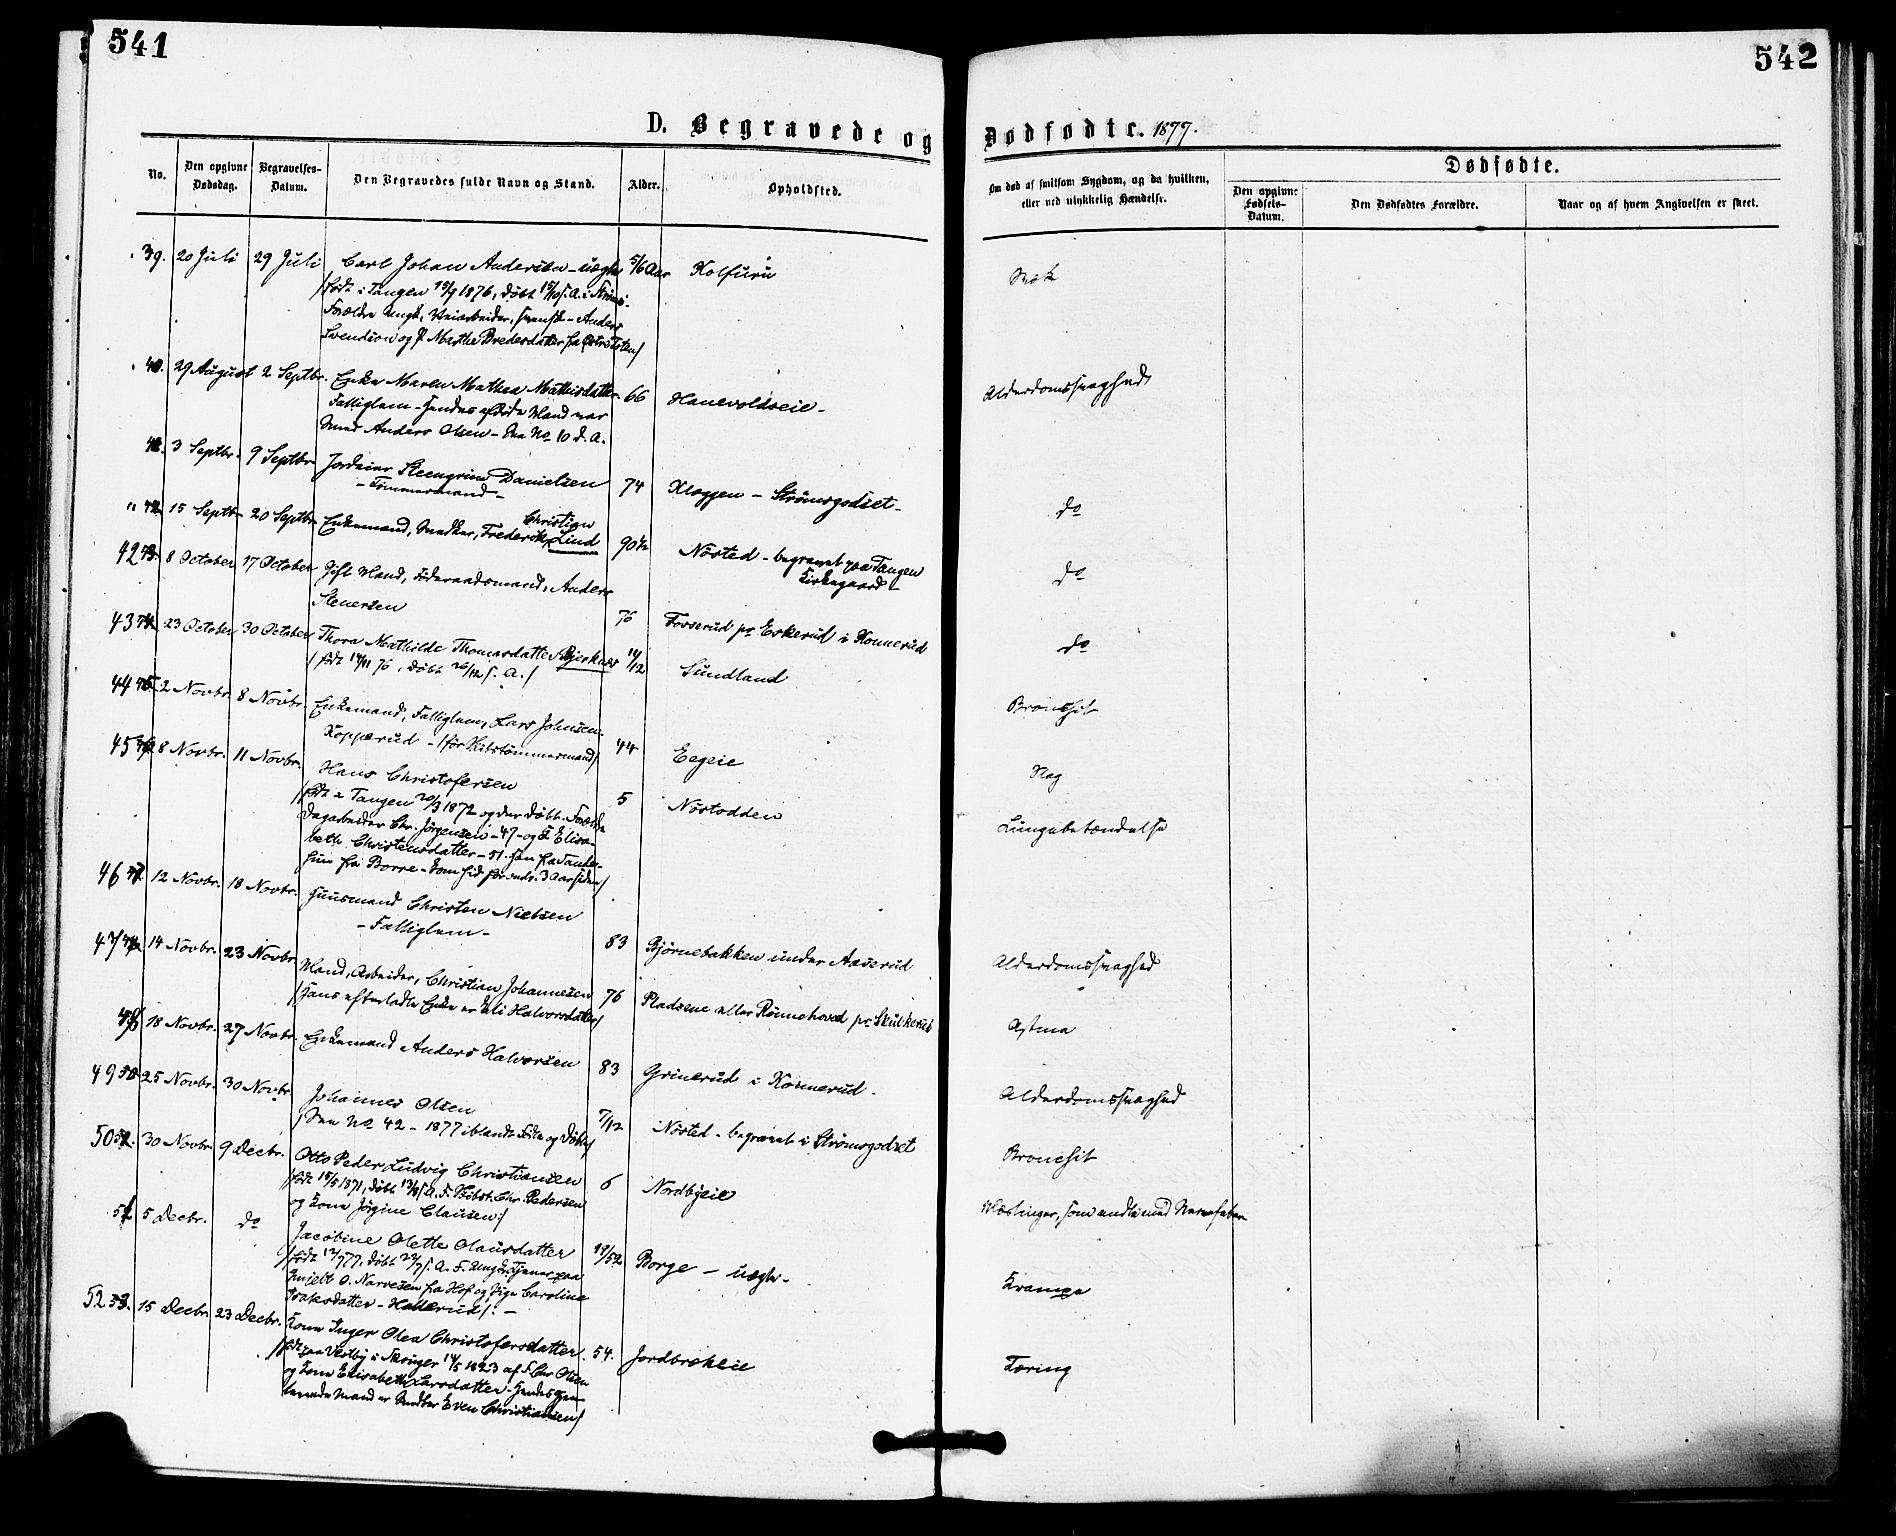 541
542
D. Begravede og
Dødfødte. 1877.
No.
Den opgivne Dødsdag.
Begravelses-Datum.
Den Begravedes fulde Navn og Stand.
Alder.
Opholdsted.
Om død af smitsom Sygdom, og da hvilken, eller ved ulykkelig Hændelse.
Dødfødte.
Den opgivne Fødsels-Datum.
Den Dødfødtes Forældre.
Naar og af hvem Angivelsen er skeet.
39. 20 Juli 29 Juli Carl Johan Andersen - uægte 5/6 Aar Kolfuru
/født i Tangen 15/9 1876, døbt
Forældre Ungk, Veiarbeider, svensk - Anders
Svendsen og P. Marthe Bredesdatter fra
40. 29 August 2 Septbr. Enke Maren Mathea Mathisdatter 66 Hanevoldseie - Alderdomssvaghed
Fattiglem - Hendes afdøde Mand var
Smed Anders Olsen - Se No 10 d. A.
3 Septbr. 9 Septbr. Danielsen 74 Kloppen - Strömsgodset - do
- Tömmermand -
15 Septbr 20 Septbr Enkemand, Snedker, Frederik Christian Lind 90 1/2 Nösted - begravet paa Tangen Kirkegaard - do
42 8 October 17 October Gift Mand, Föderaadsmand, Anders
Stenersen 76 Fosserud pr Eskerud i Konnerud do
43 23 October 30 October Thora Mathilde Thomasdatter Bjerknes 11/12 Sundland Bronchit
/født 17/11 76, døbt 26/12 s. A./
44 2 Novbr. 8 Novbr. Enkemand, Fattiglem, Lars Johnsen
Kopperud - /før Skibstömmermand/ 44 Eegeie Slag
45 8 Novbr. 11 Novbr. Hans Christofersen 5 Nöstodden Lungebetændelse
/født i Tangen 20/3 1872 og der döbt. Forældre
Dagarbeider Chr. Jørgensen - 47 - og K Elisa-
beth Christensdatter - 51.
fra Borre - kom hid for omtr. 3 Aar siden/
46 12 Novbr. 18 Novbr. Huusmand Christen Nielsen 83 Björnebakken under Aaserud Alderdomssvaghed
- Fattiglem -
47 14 Novbr. 23 Novbr. Mand, Arbeider, Christian Johannesen 76 Pladsene eller Rönnehoved pr Skulkerud Astma
/Hans efterladte Enke er Eli Halvorsdatter/
18 Novbr. 27 Novbr. Enkemand Anders Halvorsen 83 Grinerud i Konnerud. Alderdomssvaghed
49 25 Novbr. 30 Novbr Johannes Olsen 7/12 Nösted - begravet i Strömsgodset Bronchit
/See No 42 - 1877 iblandt Födte og Døbte/
50 30 Novbr 9 Decbr. Otto Peder Ludvig Christiansen 6 Nordbyeie Mæslinger, som endte med Nervefeber
/født 15/5 1871, døbt 13/8 s. A. F. Skibst. Chr. Pedersen
og Kone Jörgine Clausen:/
5 Decbr. do Jacobine Olette Olausdatter 19/52 Borge - uægte - Krampe
/født 12/7 77, døbt 22/7 s. A. F. Ungk, Tjener paa
O. Narvesen fra Hof og Pige Caroline
Isaksdatter - Hallerud/: -
52 53. 15 Decbr. 23 Decbr. Kone Inger Olea Christofersdatter. 54. Jordbrekeie Tæring
/født paa Vestby i Skouger 14/5 1823 af F. Chr Olsen
og Kone Elisabeth Larsdatter - Hendes gjen-
levende Mand er Snedker Even Christiansen/